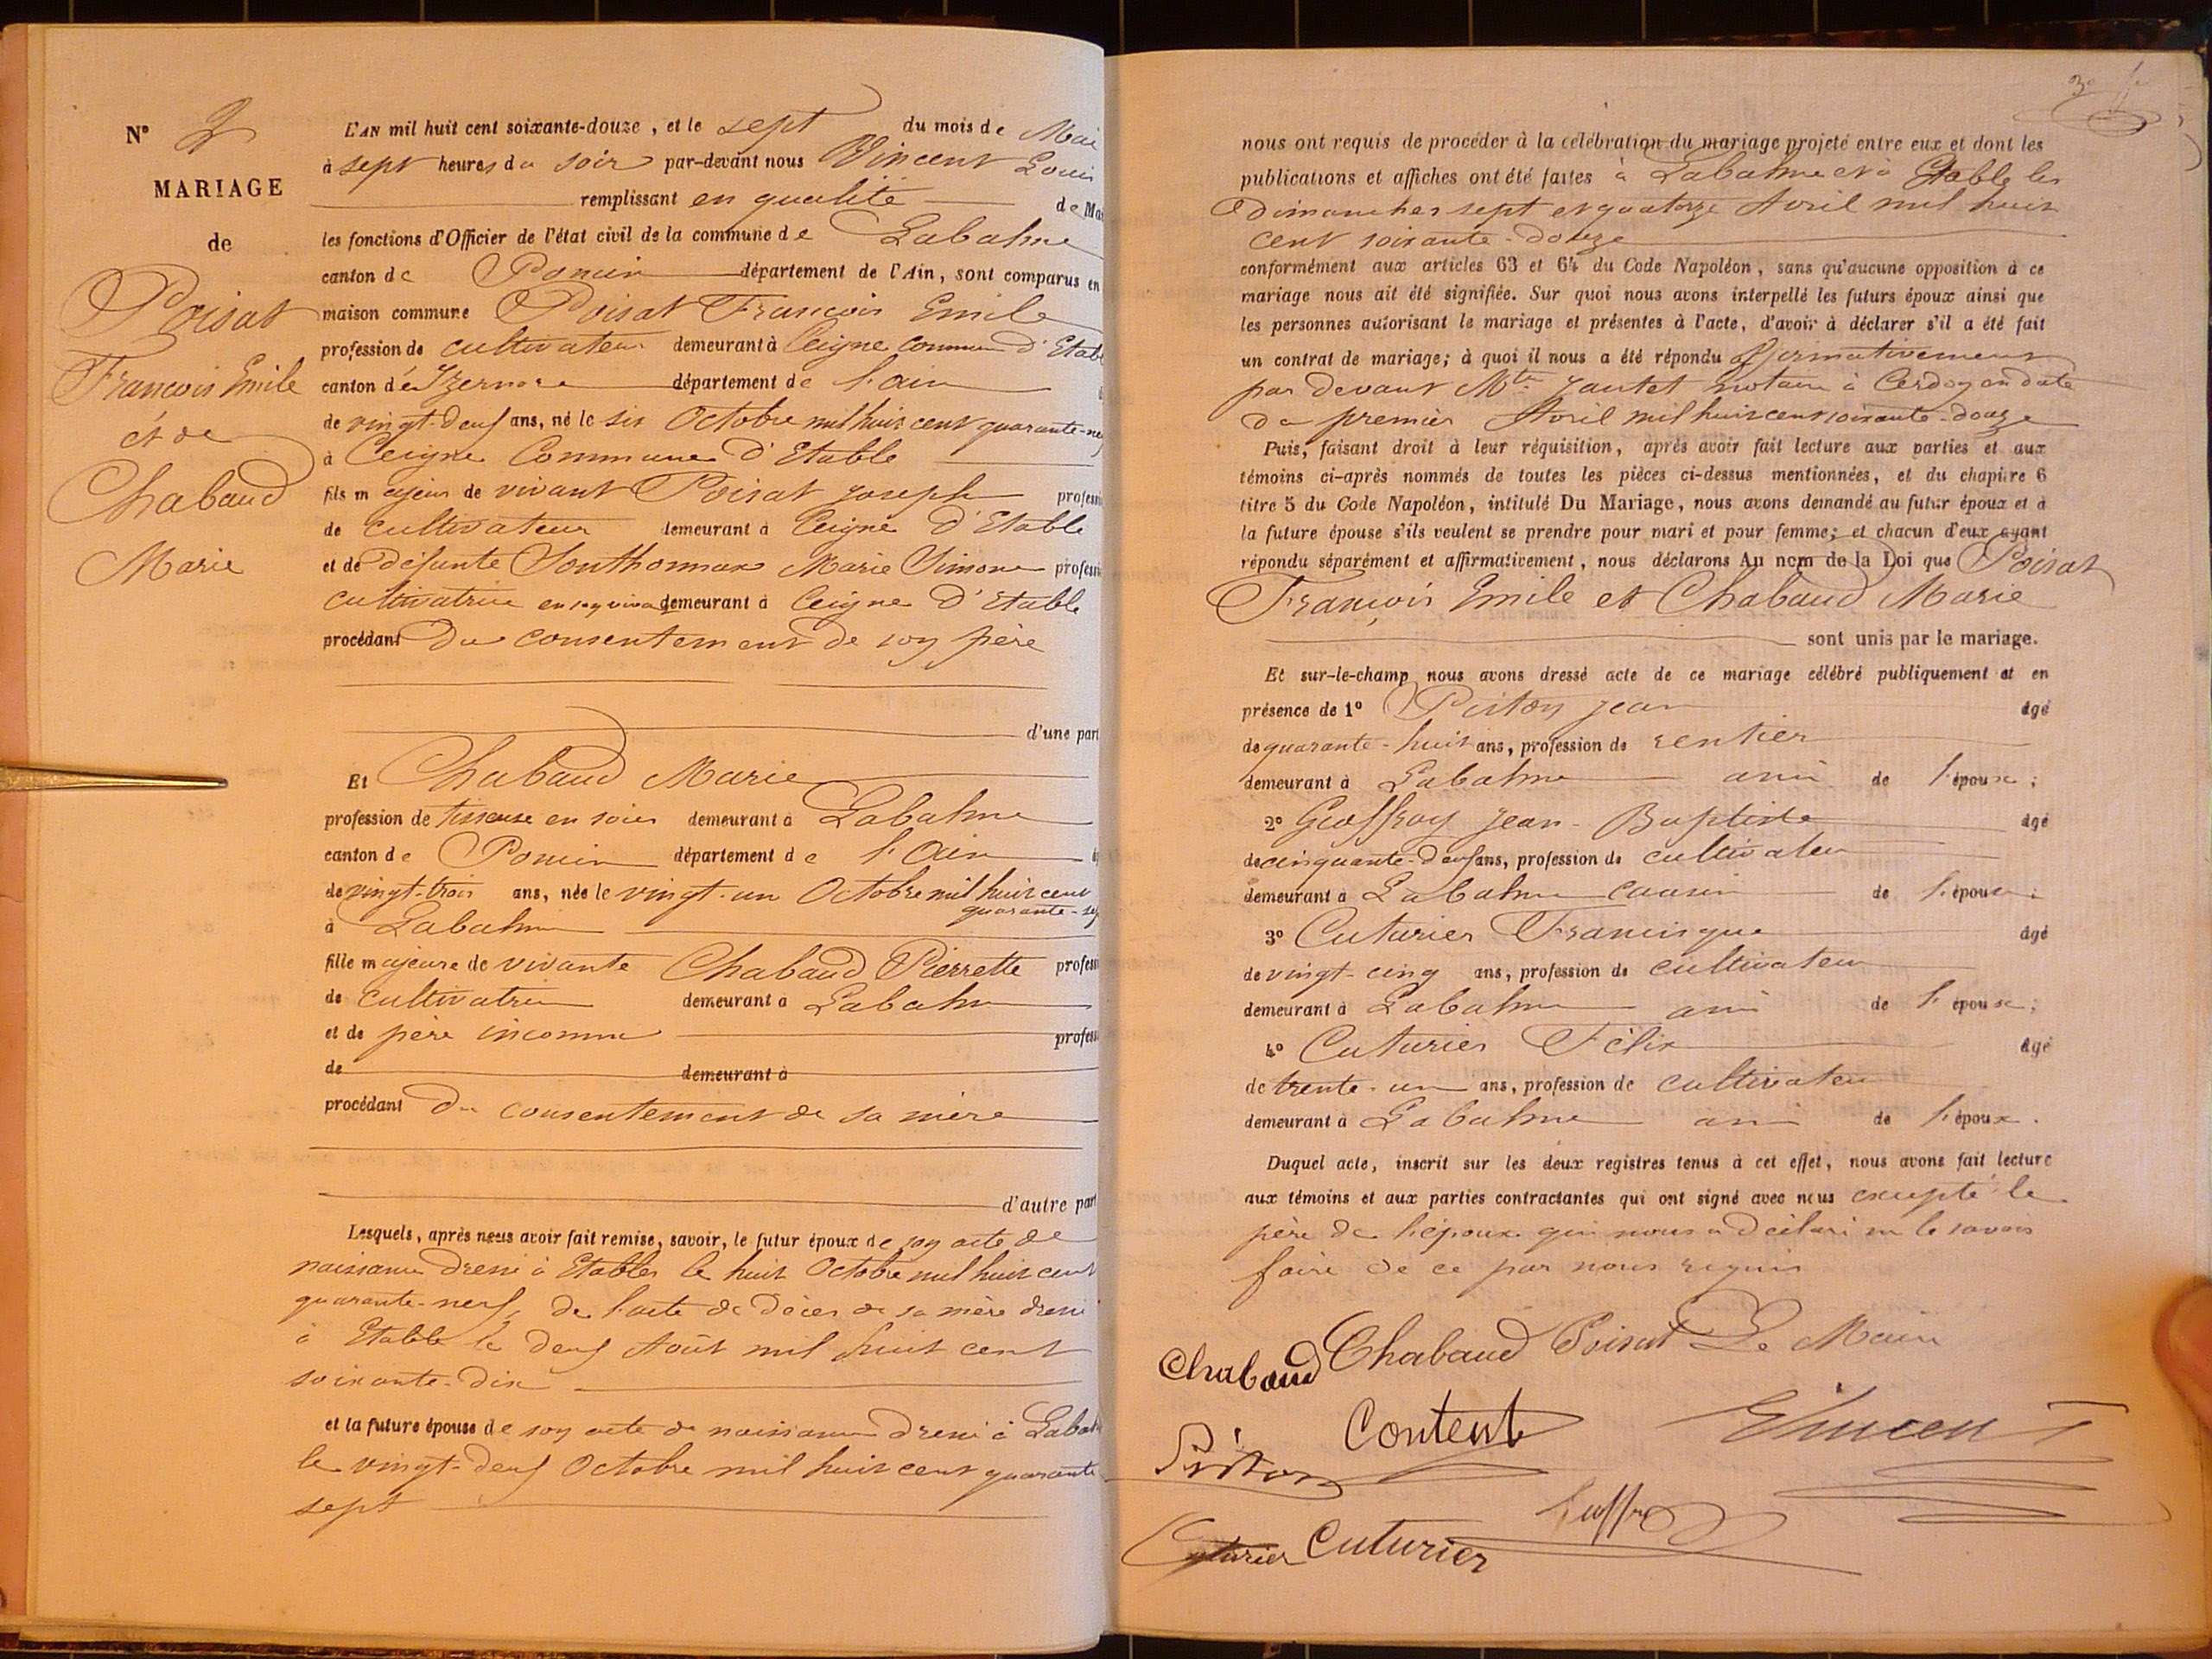 N° 2
MARIAGE
de
Poisat
François Emile
et de
Chabaud
Marie
L'AN mil huit cent soixante-douze, et le sept du mois de Mai
à sept heures du soir par-devant nous Vincent Louis
remplissant en qualité de Mai
les fonctions d'Officier de l'état civil de la commune de Labalme
canton de Poncin département de l'Ain, sont comparus en
maison commune Poisat François Emile
profession de cultivateur demeurant à Ceigne commune d'Etabl
canton d'Izernore département de l'ain
de vingt-deux ans, né le six Octobre mil huit cent quarante-neuf
à Ceigne Commune d'Etable
fils majeur de vivant Poisat Joseph professi
de cultivateur demeurant à Ceigne d'Etable
et de défunte Southonnax Marie Simone professi
cultivatrice en son vivant demeurant à Ceigne d'Etable
procédant du consentement de son père
d'une part
Et Chabaud Marie
profession de tisseuse en soies demeurant à Labalme
canton de Poncin département de l'Ain
de vingt-trois ans, née le vingt-un Octobre mil huit cent
quarante-sep
à Labalme
fille majeure de vivante Chabaud Pierrette profess
de cultivatrice demeurant à Labalme
et de père inconnu profess
de demeurant à
procédant du consentement de sa mère
d'autre part
Lesquels, après nous avoir fait remise, savoir, le futur époux de son acte de
naissance dressé à Etables le huit Octobre mil huit cent
quarante-neuf, de l'acte de décès de sa mère dressé
à Etable le deux Août mil huit cent
soixante-dix
et la future épouse de son acte de naissance dressé à Labal
le vingt-deux Octobre mil huit cent quarante
sept
nous ont requis de procéder à la célébration du mariage projeté entre eux et dont les
publications et affiches ont été faites à Labalme et à Etable les
dimanches sept et quatorze Avril mil huit
cent soixante-douze
conformément aux articles 63 et 64 du Code Napoléon, sans qu'aucune opposition à ce
mariage nous ait été signifiée. Sur quoi nous avons interpellé les futurs époux ainsi que
les personnes autorisant le mariage et présentes à l'acte, d'avoir à déclarer s'il a été fait
un contrat de mariage; à quoi il nous a été répondu affirmativement
par devant Mtre Jautet notaire à Cerdon en date
du premier Avril mil huit cent soixante-douze
Puis, faisant droit à leur réquisition, après avoir fait lecture aux parties et aux
témoins ci-après nommés de toutes les pièces ci-dessus mentionnées, et du chapitre 6
titre 5 du Code Napoléon, intitulé Du Mariage, nous avons demandé au futur époux et à
la future épouse s'ils veulent se prendre pour mari et pour femme; et chacun d'eux ayant
répondu séparément et affirmativement, nous déclarons Au nom de la Loi que Poisat
François Emile et Chabaud Marie
sont unis par le mariage.
Et sur-le-champ nous avons dressé acte de ce mariage célébré publiquement et en
présence de 1° Piston Jean âgé
de quarante-huit ans, profession de rentier
demeurant à Labalme ami de l'épouse;
2° Geoffray Jean-Baptiste âgé
de cinquante-deux ans, profession de cultivateur
demeurant à Labalme cousin de l'épouse;
3° Cuturier Francisque âgé
de vingt-cinq ans, profession de cultivateur
demeurant à Labalme ami de l'épouse;
4° Cuturier Félix âgé
de trente-un ans, profession de cultivateur
demeurant à Labalme ami de l'époux.
Duquel acte, inscrit sur les deux registres tenus à cet effet, nous avons fait lecture
aux témoins et aux parties contractantes qui ont signé avec nous excepté le
père de l'époux qui nous a déclaré ne le savoir
faire de ce par nous requis
Chabaud Chabaud Poisat Le Maire
Content Vincent
Piston
Cuturier Cuturier